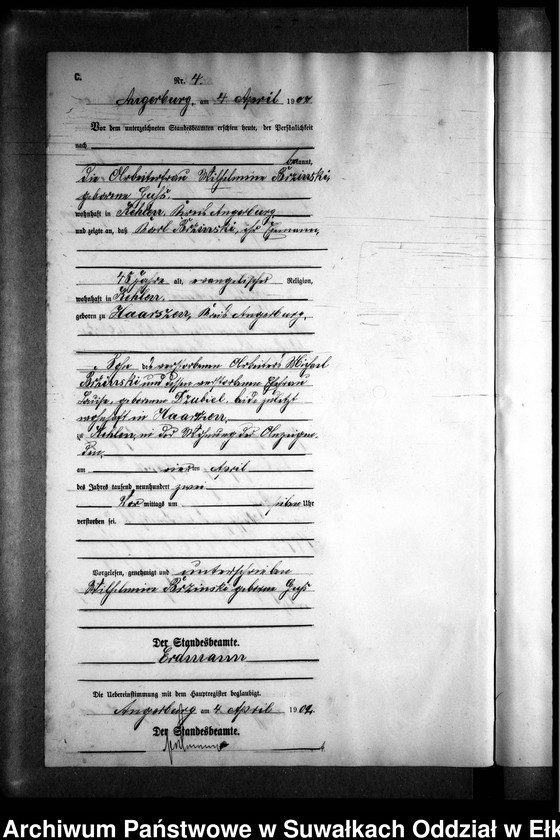 C.
Nr. 4.
Angerburg, am 4 April 1902
Vor dem unterzeichneten Standesbeamten erschien heute, der Persönlichkeit
nach
bekannt,
die Arbeiterfrau Wilhelmine Brzinski,
geborene Guss,
wohnhaft in Kehlen, Kreis Angerburg
und zeigte an, daß Karl Brzinski, ihr Ehemann,
45 Jahre alt, evangelischer Religion,
wohnhaft in Kehlen,
geboren zu Haarszen, Kreis Angerburg,
Sohn des verstorbenen Arbeiters Michael
Brzinski und dessen verstorbenen Ehefrau
Louise, geborenen Dzubiel, beide zuletzt
wohnhaft in Haarszen,
zu Kehlen, in der Wohnung der Anzeigen-
den,
am vierten April
des Jahres tausend neunhundert zwei
Vor mittags um sieben Uhr
verstorben sei.
Vorgelesen, genehmigt und unterschrieben
Wilhelmine Brzinski geborene Guss
Der Standesbeamte.
Erdmann
Die Uebereinstimmung mit dem Hauptregister beglaubigt.
Angerburg am 4 April 1902.
Der Standesbeamte.
Archiwum Państwowe w Suwałkach Oddział w Ełk